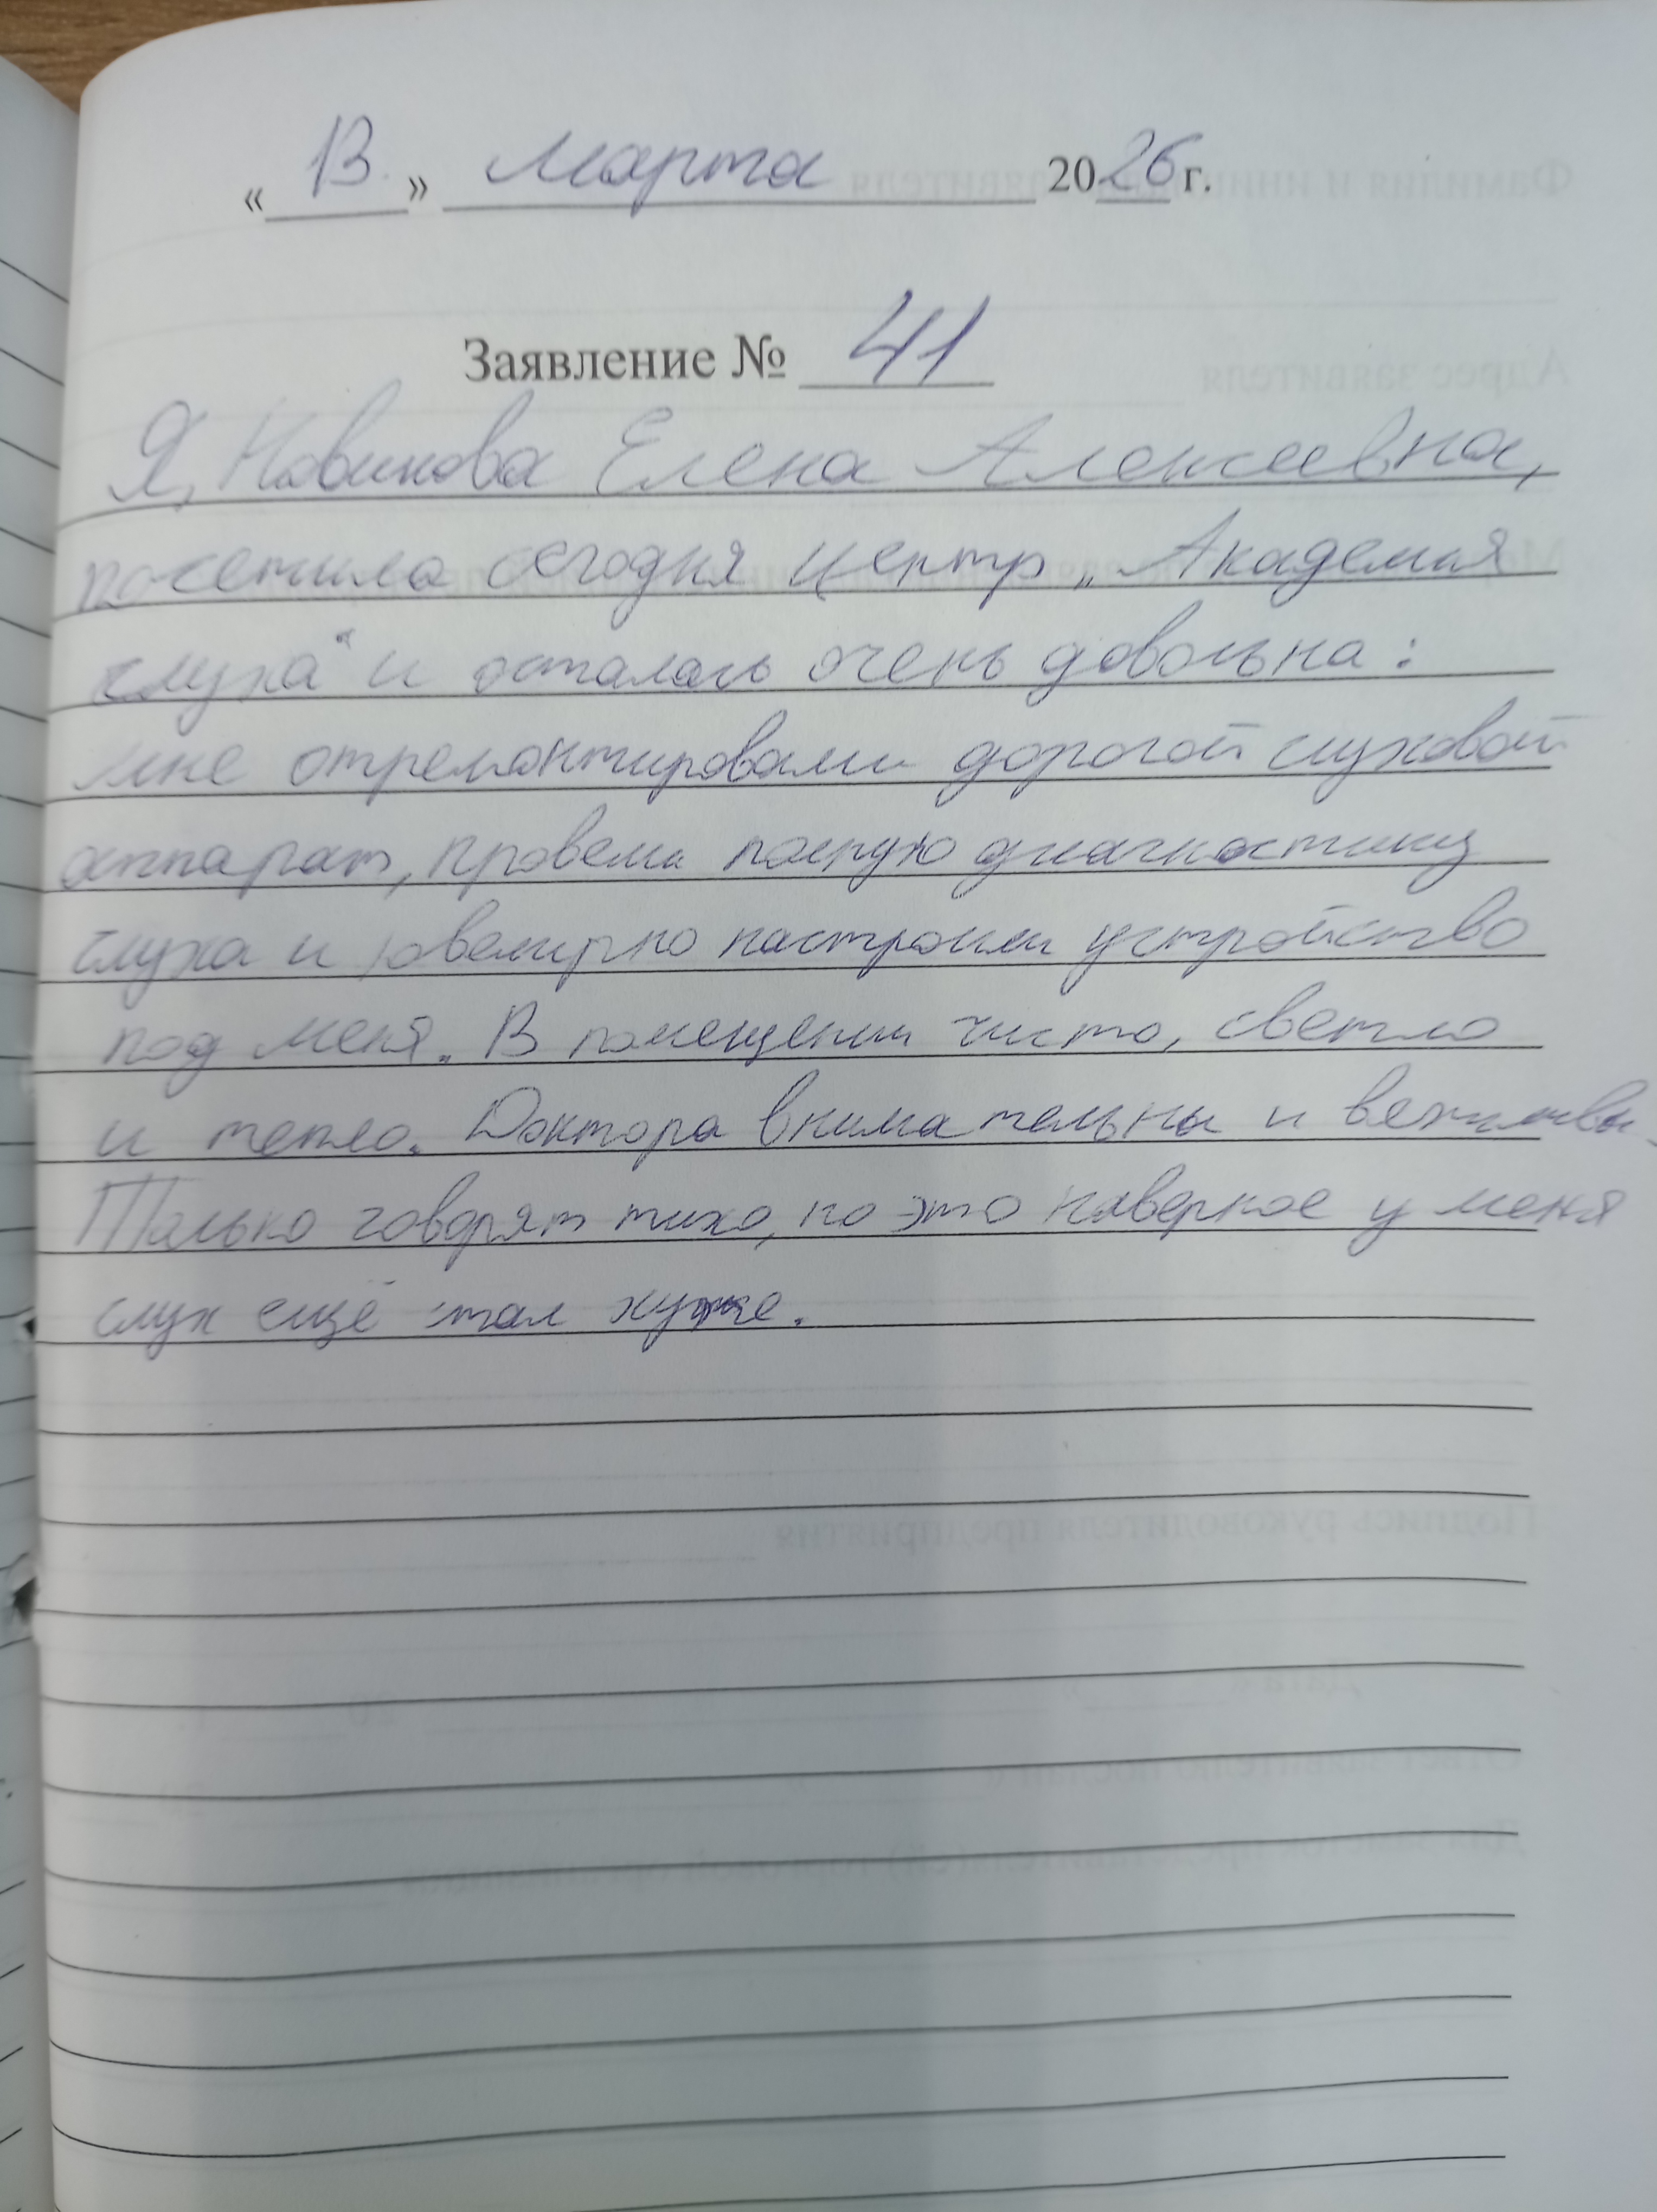 « 13 » марта 2026 г.
Заявление № 41
Я, Новикова Елена Алексеевна,
посетила сегодня центр „Академия
слуха“ и осталась очень довольна:
мне отремонтировали дорогой слуховой
аппарат, провели полную диагностику
слуха и ювелирно настроили устройство
под меня. В помещении чисто, светло
и тепло. Доктора внимательны и вежливы.
Только говорят тихо, но это наверное у меня
слух ещё стал хуже.